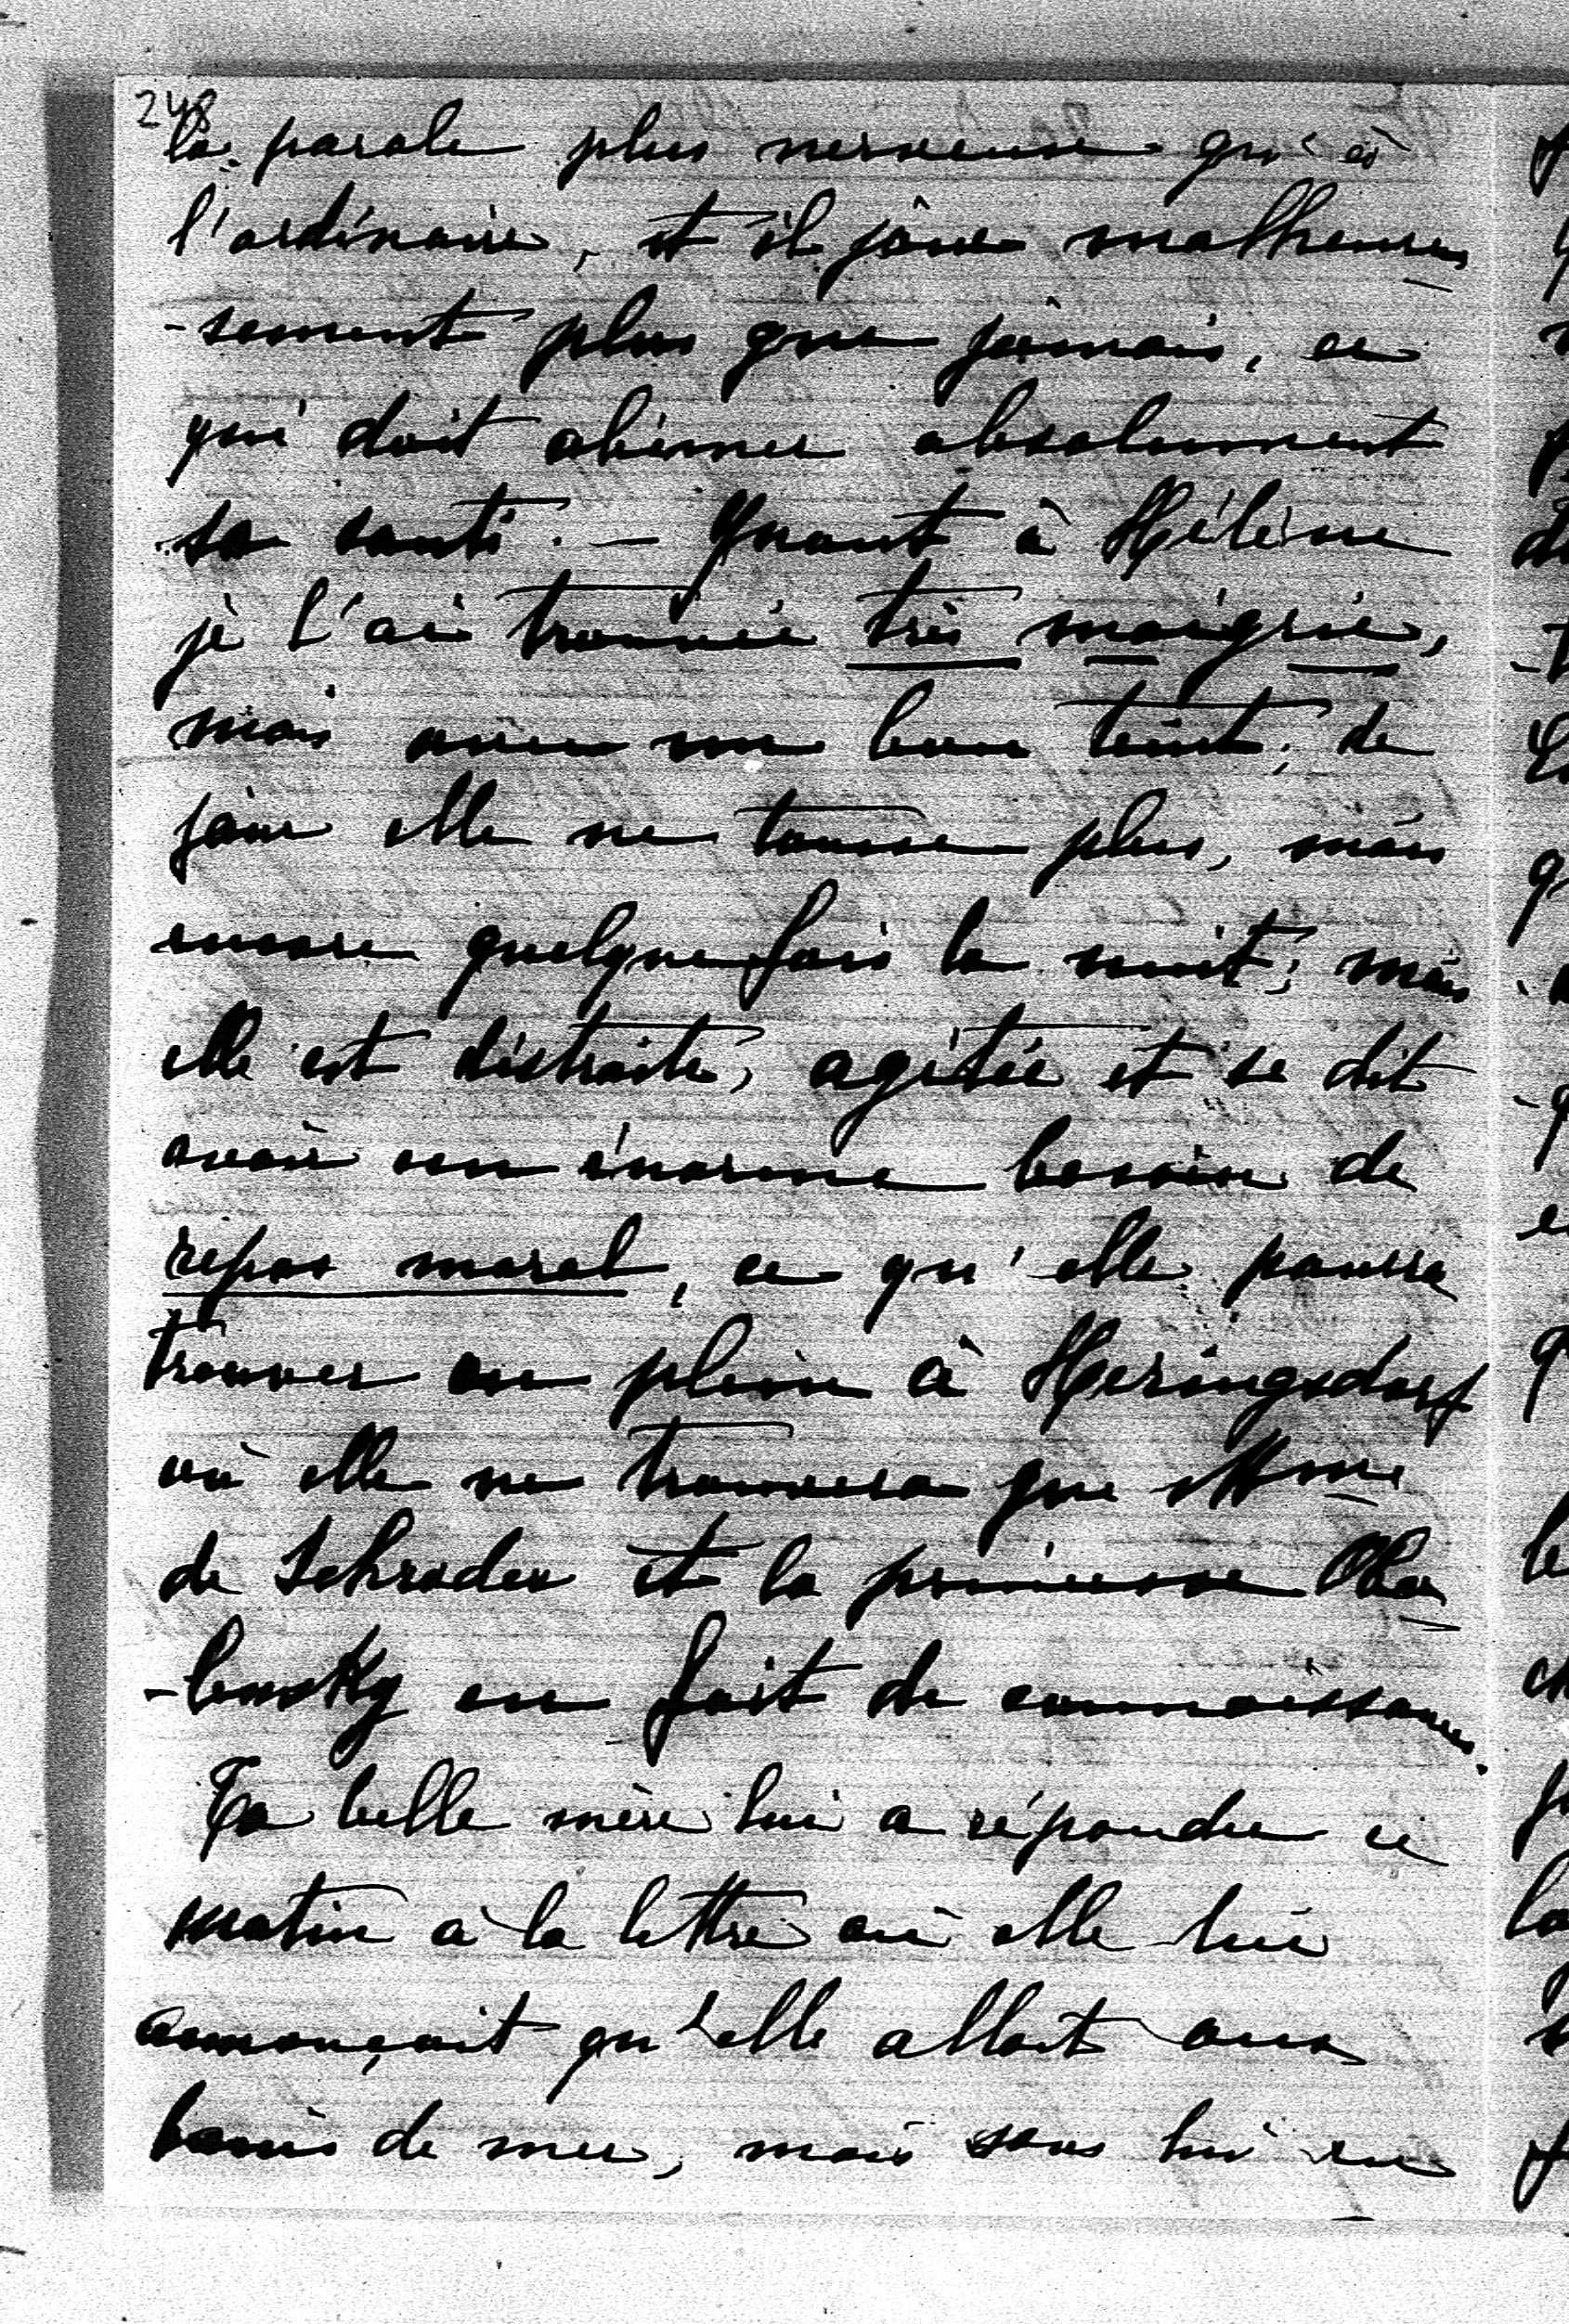 248
la parole plus nerveuse qu'à
l'ordinaire, et il joue malheureu
-sement plus que jamais, ce
qui doit abîmer absolument
sa santé. — Quant à Hélène
je l'ai trouvée très maigrie,
mais avec une bone teint; de
jour elle ne tousse plus, mais
encore quelquefois la nuit; mais
elle est distraite, agitée et se dit
avoir un énorme besoin de
repos moral, ce qu'elle pourra
trouver en plein à Heringsdorf
où elle ne trouvera que Mme
de Schroder et la princesse Obo
-lensky en fait de connaissances.
Ta belle mère lui a répondu ce
matin à la lettre où elle lui
annonçait qu'elle allait aux
bains de mer, mais sans lui en